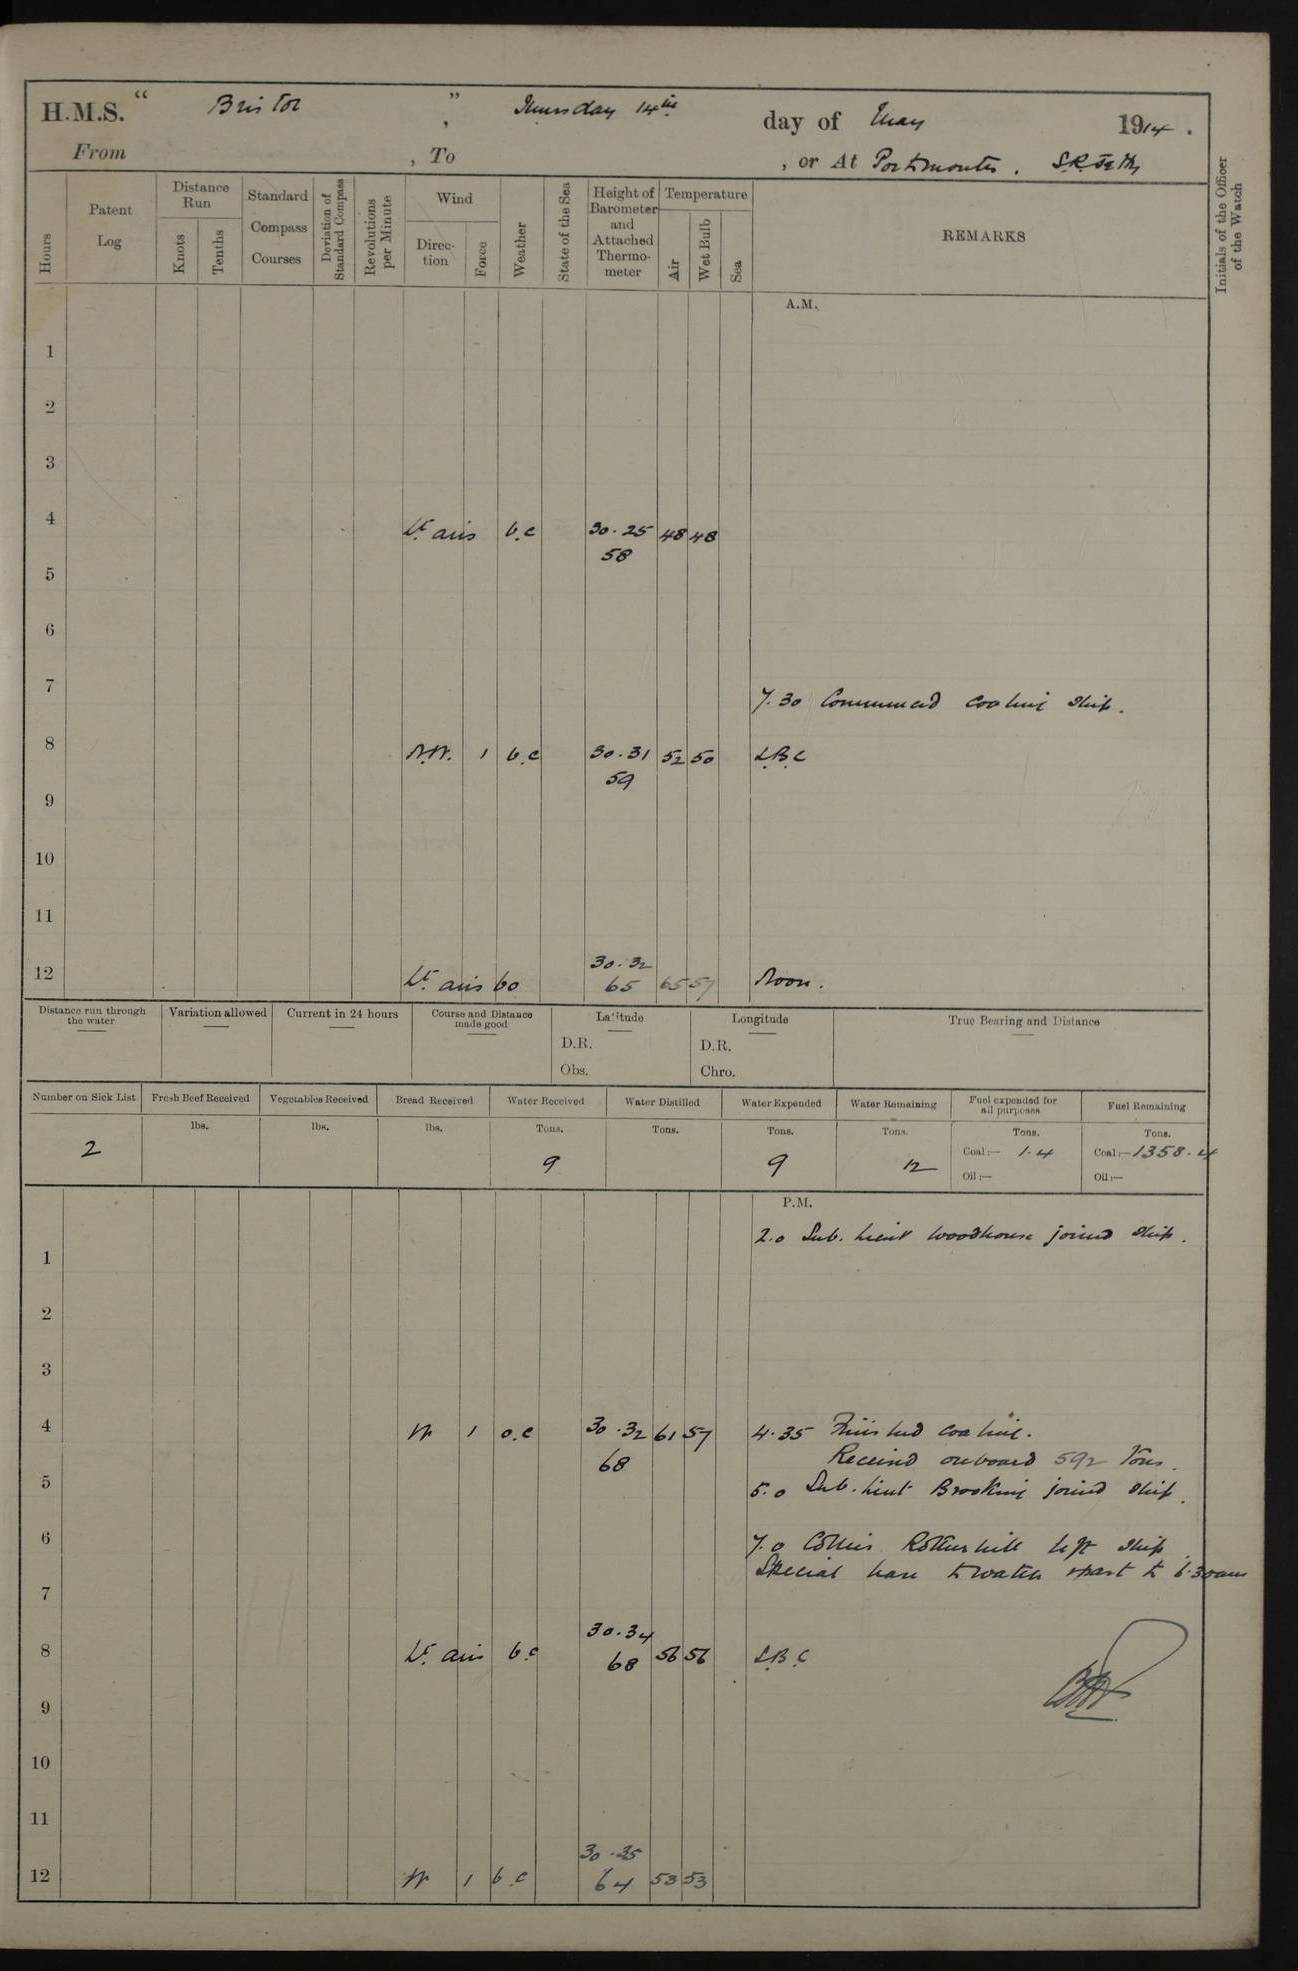 H.M.S. “ Bristol ” , Thursday 14th day of May 1914.
From , To , or At Portsmouth. S.R. Jetty
Hours
Patent Log
Distance Run
Knots
Tenths
Standard Compass Courses
Deviation of Standard Compass
Revolutions per Minute
Wind
Direction
Force
Weather
State of the Sea
Height of Barometer and Attached Thermometer
Temperature
Air
Wet Bulb
Sea
REMARKS
Initials of the Officer of the Watch
A.M.
1
2
3
4 Lt. airs b.c 30.25 48 48
58
5
6
7
7.30 Commenced coaling ship.
8 N.W. 1 b.c 30.31 52 50 S.B.C
59
9
10
11
12 Lt. airs bc 30.32 65 57 Noon.
65
Distance run through the water
Variation allowed
Current in 24 hours
Course and Distance made good
Latitude
D.R.
Obs.
Longitude
D.R.
Chro.
True Bearing and Distance
Number on Sick List
Fresh Beef Received
Vegetables Received
Bread Received
Water Received
Water Distilled
Water Expended
Water Remaining
Fuel expended for all purposes
Fuel Remaining
lbs. lbs. lbs. Tons. Tons. Tons. Tons. Tons. Tons.
2 9 9 12 Coal:— 1.4 Coal:— 1358.4
Oil:— Oil:—
P.M.
2.0 Sub. Lieut Woodhouse joined ship.
1
2
3
4 W 1 o.c 30.32 61 57 4.35 Finished coaling.
68 Received onboard 592 Tons.
5 5.0 Sub. Lieut Brooking joined ship.
6 7.0 Collier Rotherhill left ship
Special leave to watch & part to 6.30am
7
8 Lt. airs b.c 30.34 56 56 S.B.C
68
9
10
11
12 W 1 b.c 30.35 53 53
64